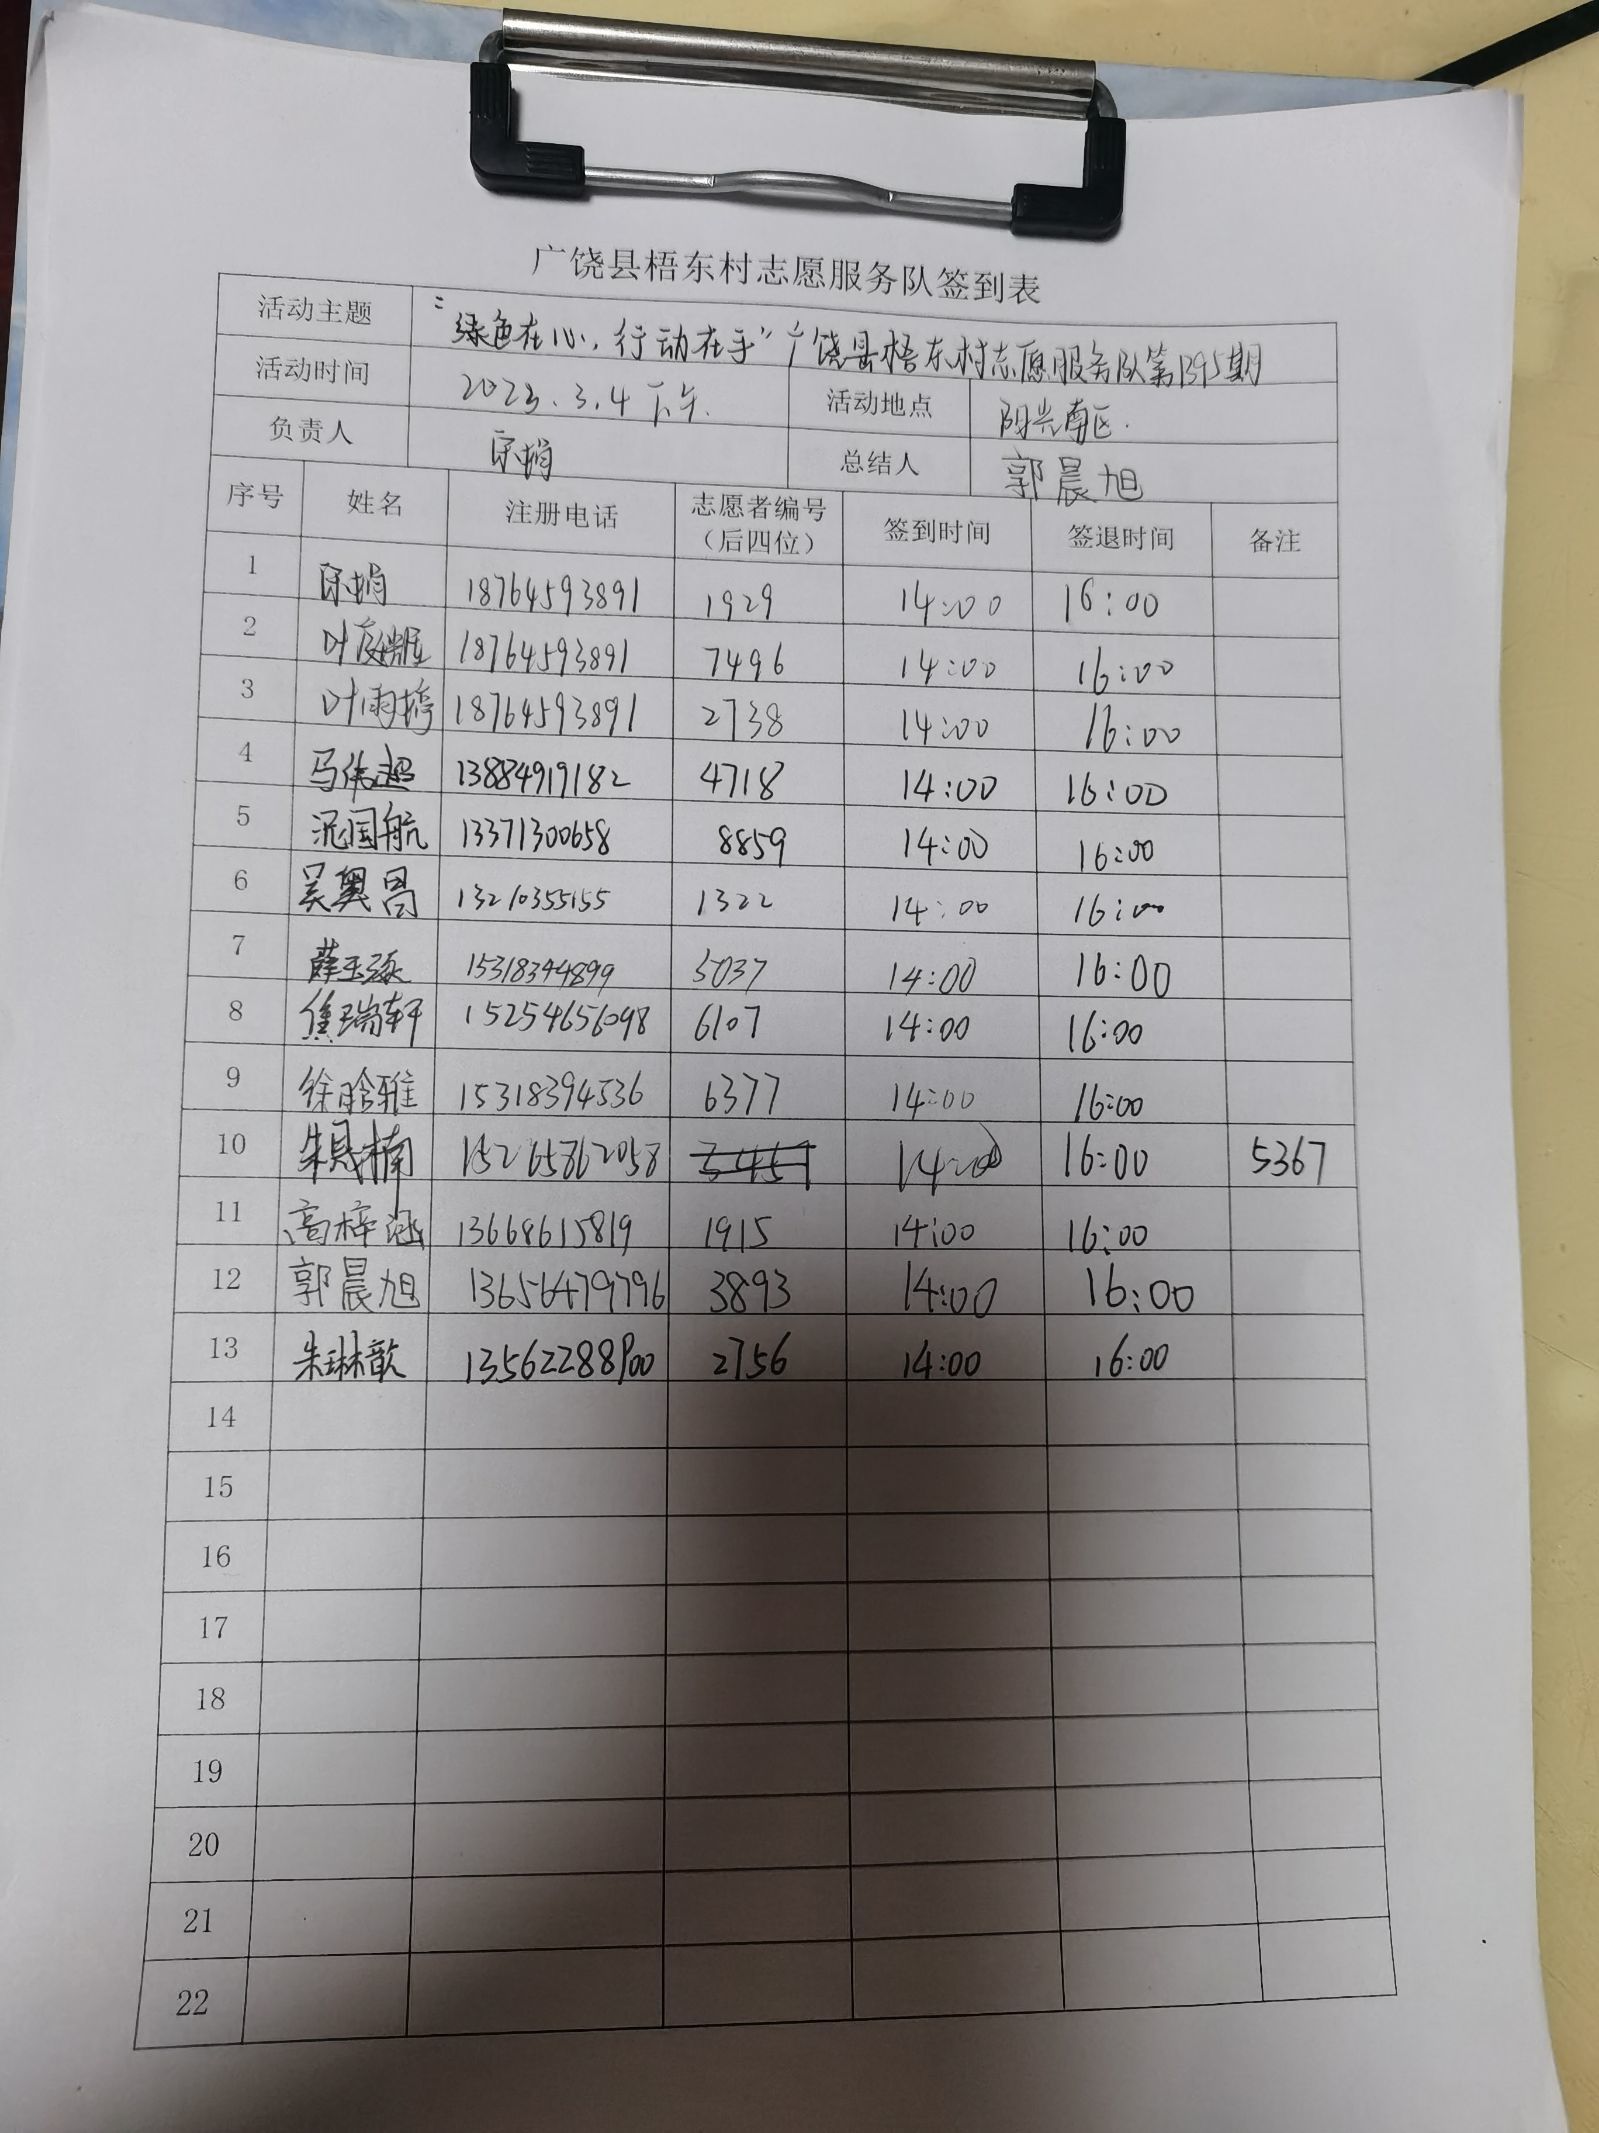 广饶县梧东村志愿服务队签到表
活动主题 “绿色在心,行动在手”广饶县梧东村志愿服务队第1395期
活动时间 2023.3.4下午. 活动地点 阳光南区.
负责人 宋娟 总结人 郭晨旭
序号 姓名 注册电话 志愿者编号(后四位) 签到时间 签退时间 备注
1 宋娟 18764593891 1929 14:00 16:00
2 叶庭 18764593891 7496 14:00 16:00
3 叶雨 18764593891 2738 14:00 16:00
4 马伟超 13884919182 4718 14:00 16:00
5 国航 13371300658 8859 14:00 16:00
6 吴奥昌 13210355155 1322 14:00 16:00
7 薛玉琢 15318344899 5037 14:00 16:00
8 焦瑞轩 15254656098 6107 14:00 16:00
9 徐晗雅 15318394536 6377 14:00 16:00
10 朱晟楠 15265862058 14:00 16:00 5367
11 高梓涵 13668615819 1915 14:00 16:00
12 郭晨旭 13656479796 3893 14:00 16:00
13 朱琳歆 13562288900 2756 14:00 16:00
14
15
16
17
18
19
20
21
22